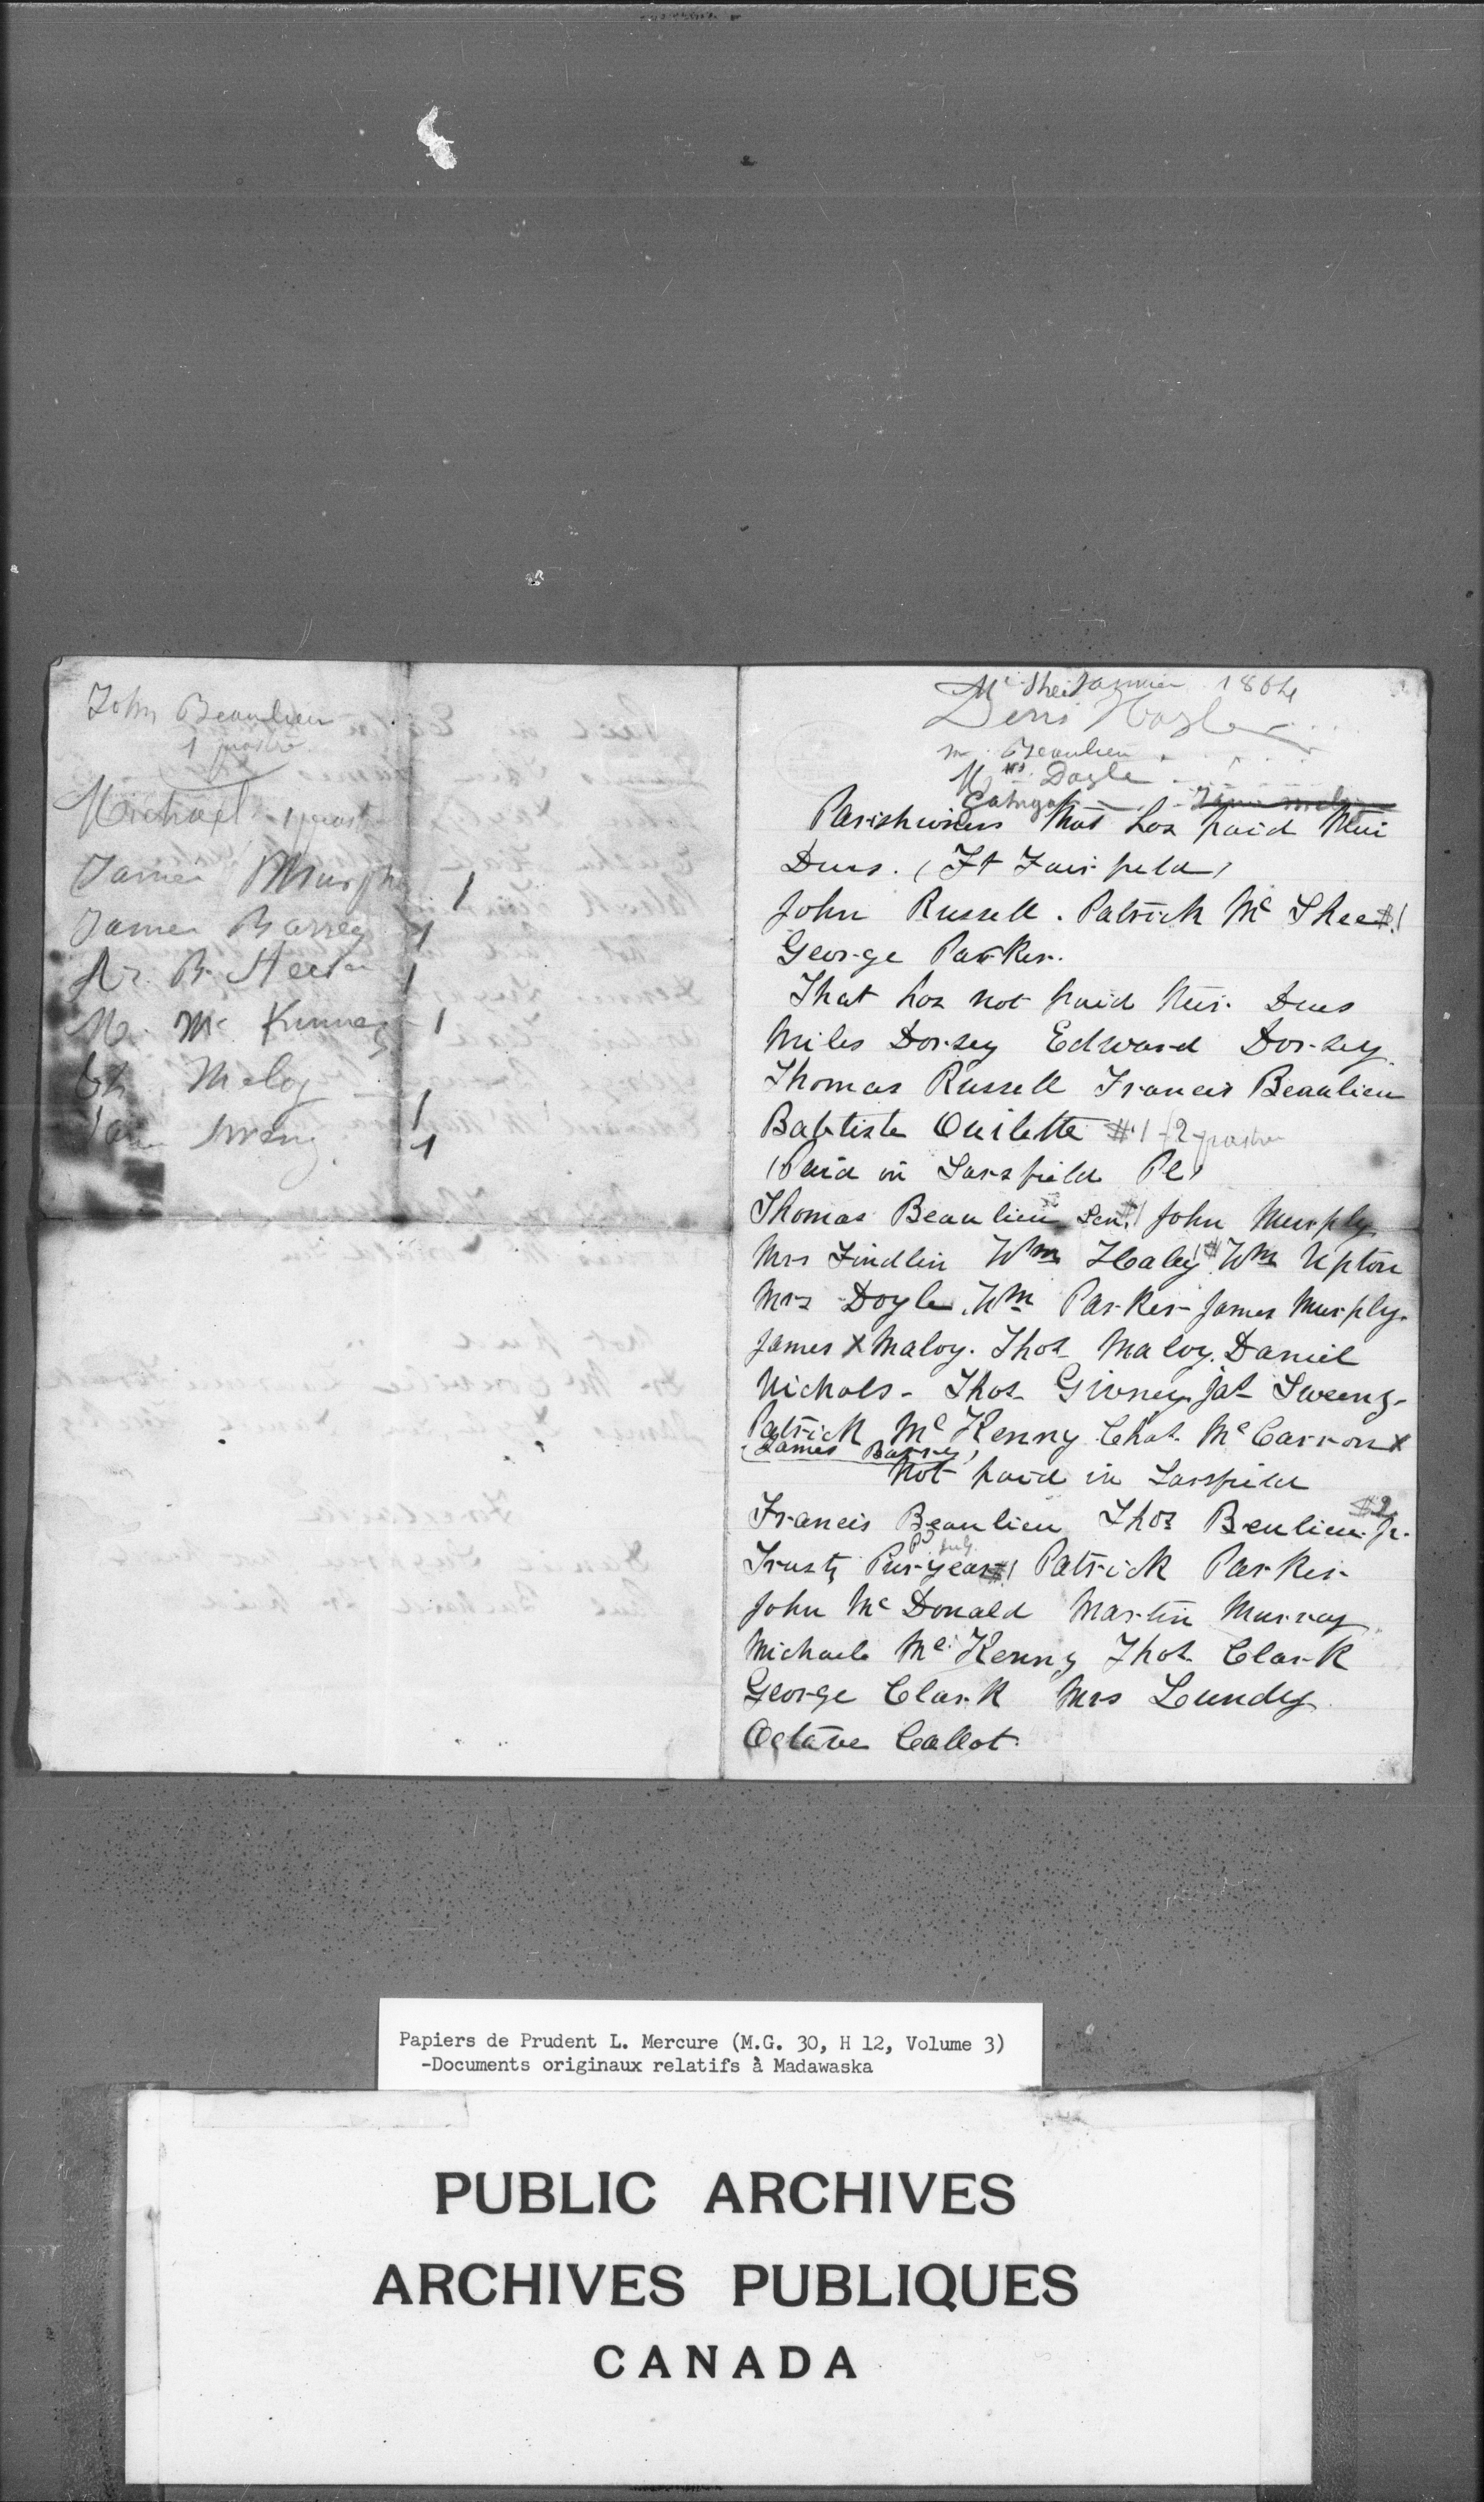 John Beaulieu
1 piastre
Michael 1 piast
James Murphy 1
James Barrey 1
B. 1
Mc Kinney 1
Meloy 1
Sweeny 1
Mc Shee Janvier 1864
Denis
m. Beaulieu
Mrs. Doyle
Parishioners that has paid thei
Dues. (Ft Fairfield)
John Russell. Patrick Mc Shee $1
George Parker.
That has not paid their Dues
Miles Dorsey Edward Dorsey
Thomas Russell Francis Beaulieu
Babtiste Ouilette $1 2 piastre
(Paid in Sarsfield Pl)
Thomas Beaulieu Sen. $1 John Murphy
Mrs Findlin Wm Healey $1 Wm Upton
Mrs Doyle. Wm Parker James Murphy.
James X Maloy. Thos Maloy. Daniel
Nichols - Thos Givney. Jas Sweeny.
Patrick Mc Kenny Chas. Mc Carron X
(James Barrey)
Not paid in Sarsfield
Francis Beaulieu Thos Beulieu Jr. $2
Trusty Pur year $1 Patrick Parker
John Mc Donald Martin Murray
Michael Mc Kenny Thos Clark
George Clark Mrs Lundy
Octave Callot.
Papiers de Prudent L. Mercure (M.G. 30, H 12, Volume 3)
-Documents originaux relatifs à Madawaska
PUBLIC ARCHIVES
ARCHIVES PUBLIQUES
CANADA